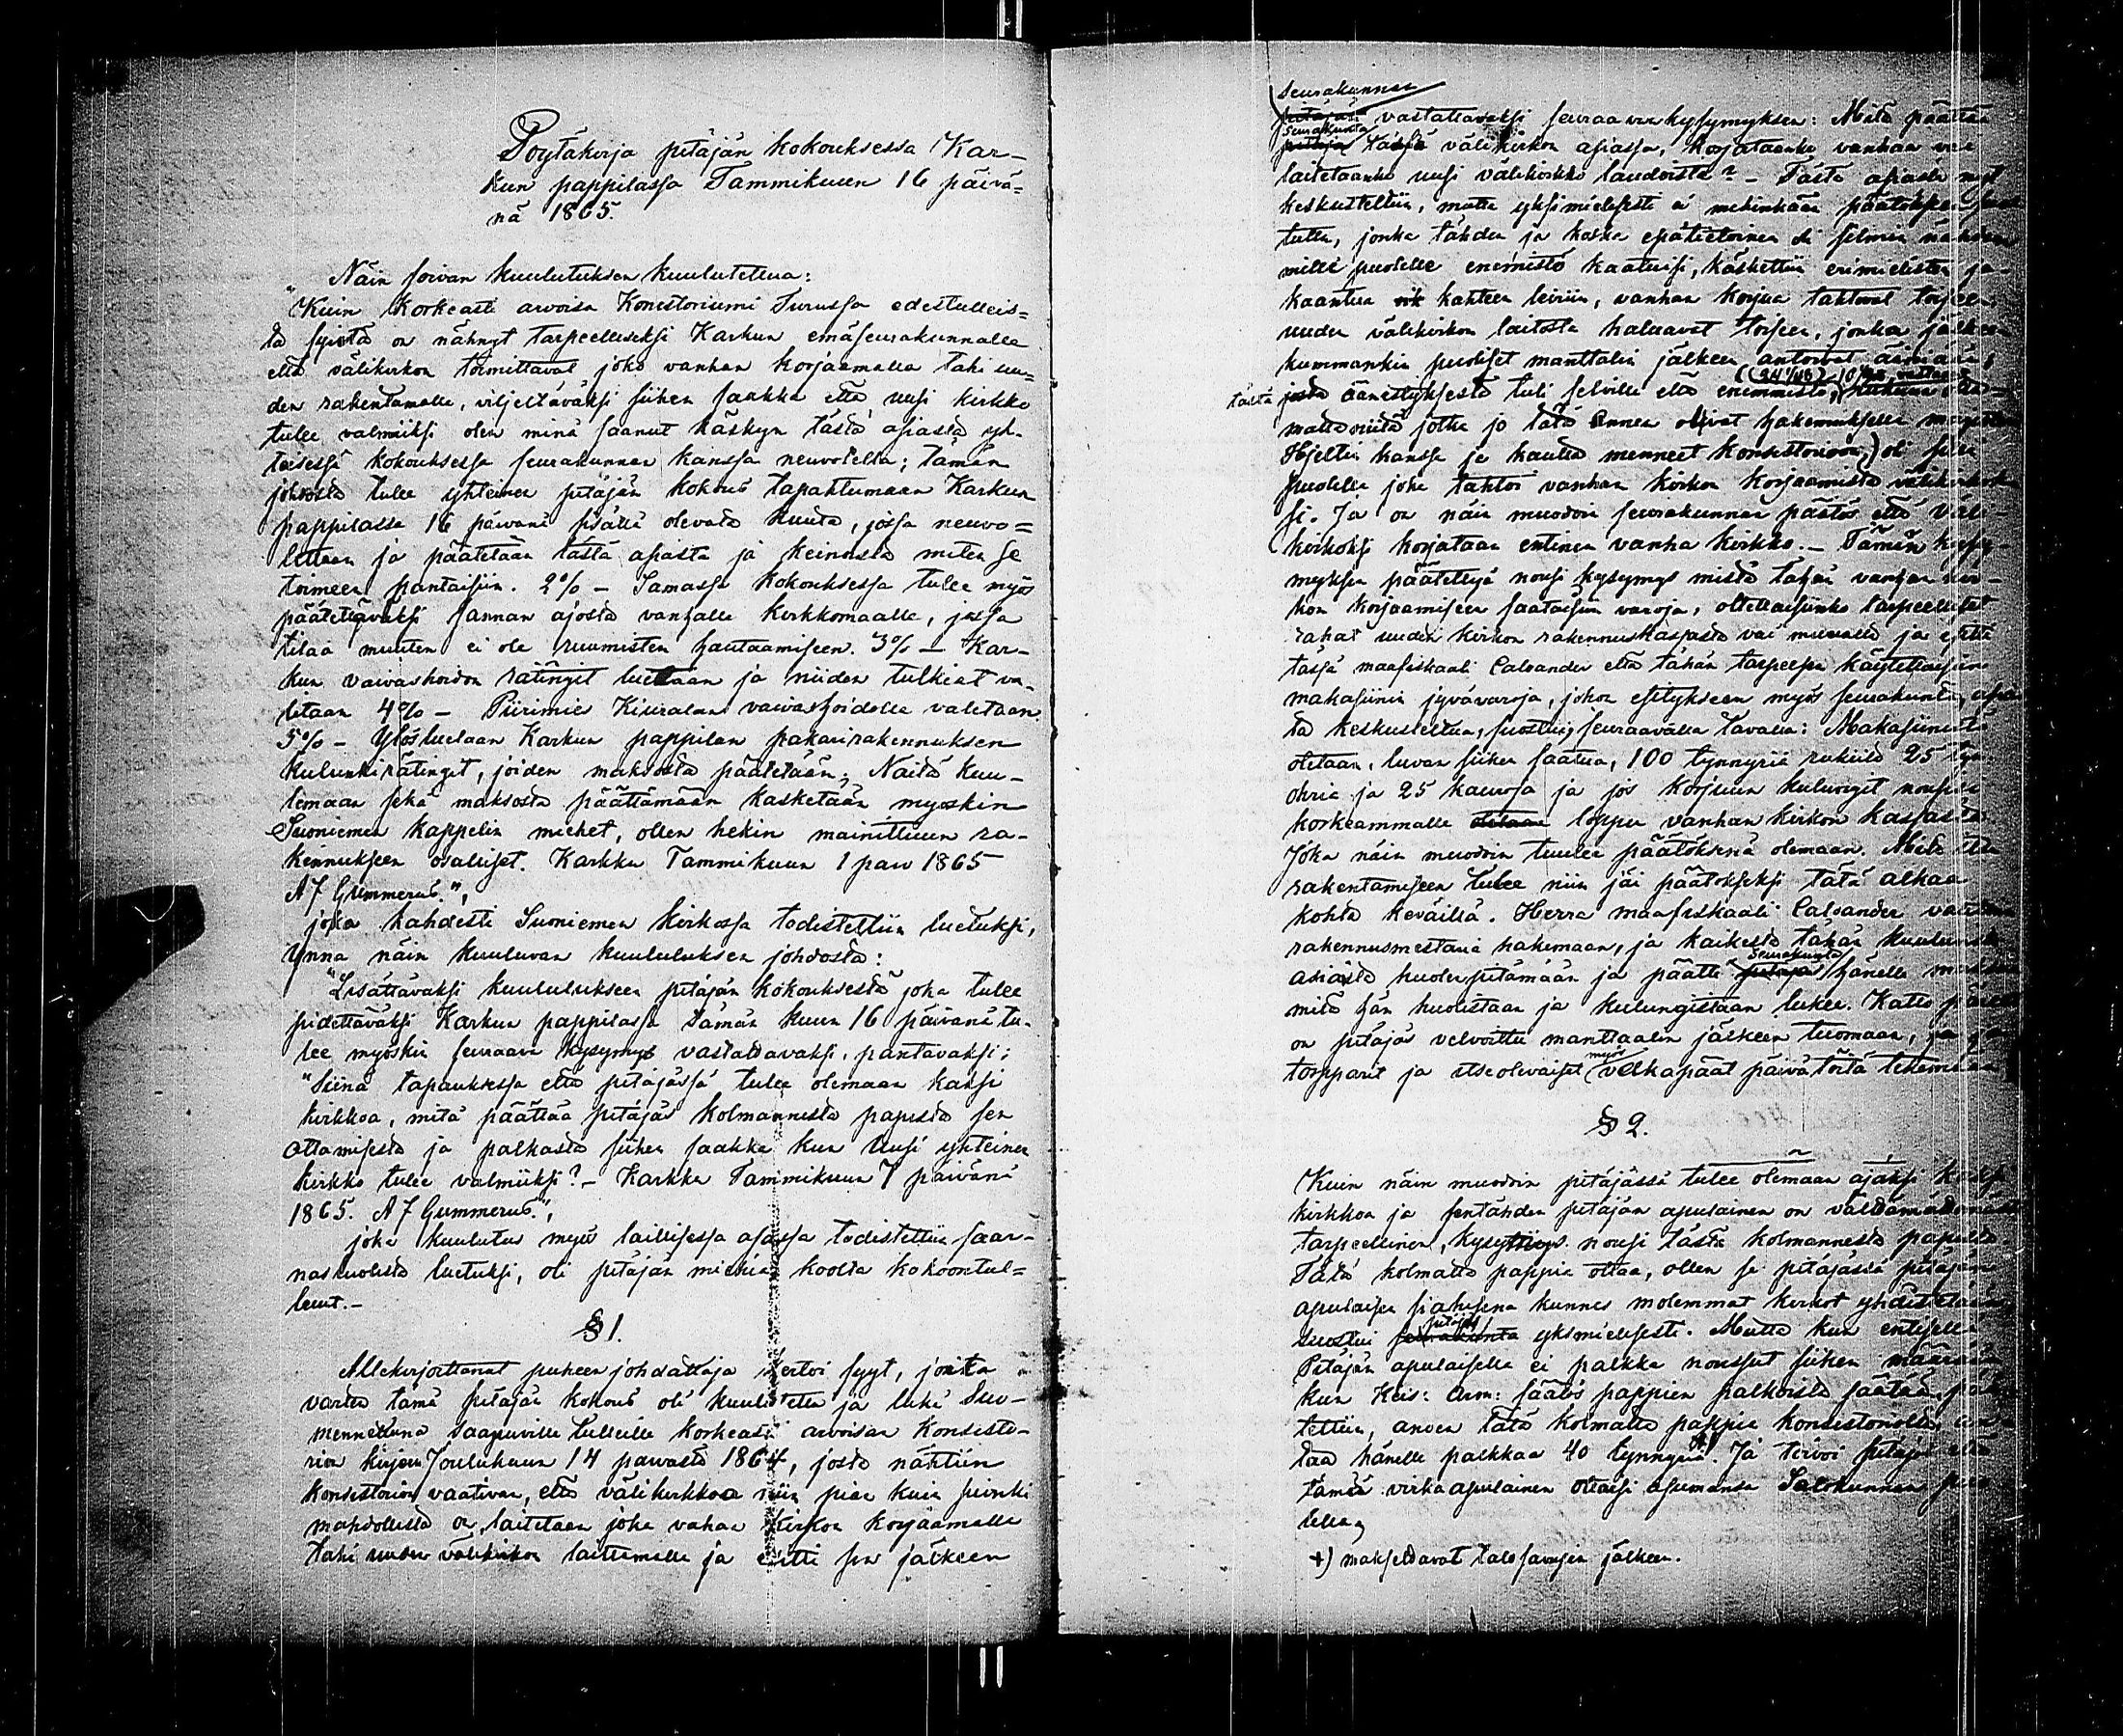 Pöytäkirja pitäjän kokouksessa Kar-
kun pappilassa Tammikuun 16 päivä=
nä 1865.
Näin soivan kuulutuksen kuulutettua:
"Kuin Korkeasti arvoisa Konsistoriumi Turussa edestulleis=
ta syistä on nähnyt tarpeelliseksi Karkun emäseurakunnalle
että välikirkon toimittavat joko vanhan korjaamalla tahi uu=
den rakentamalla, viljeltäväksi siihen saakka että uusi kirkko
tulee valmiiksi olen minä saanut käskyn tästä asiasta yh-
teisessä kokouksessa seurakunnan kanssa neuvotella; tämän
johdosta tulee yhteinen pitäjän kokous tapahtumaan Karkun
pappilassa 16 päivänä sisällä olevata kuuta, jossa neuvo=
tellaan ja päätetään tästä asiasta ja keinoista miten se
toimeen pantaisiin. 2% - Samassa kokouksessa tulee myös
päätettäväksi sannan ajosta vanhalle kirkkomaalle, jossa
tilaa muuten ei ole ruumisten hautaamiseen. 3% - Kar-
kun vaivashoidon rätingit luetaan ja niiden tutkiat va-
litaan 4% - Piirimies Kiuralan vaivashoidolle valitaan.
5% - Ylösluetaan Karkun pappilan pakarirakennuksen
kulunkirätingit, joiden maksosta päätetään; Näitä kuu-
lemaan sekä maksosta päättämään kasketään myöskin
Suoniemen kappelin miehet, ollen hekin mainittuun ra-
kennukseen osalliset. Karkku Tammikuun 1 päiv 1865
A F Gummerus.",
joka kahdesti Suoniemen kirkossa todistettiin luetuksi,
ynnä näin kuuluvan kuulutuksen johdosta:
"Lisättäväksi kuulutukseen pitäjän kokouksesta joka tulee
pidettäväksi Karkun pappilassa tämän kuun 16 päivänä tu-
lee myöskin seuraava kysymys vastattavaksi pantavaksi:
"Siinä tapauksessa että pitäjässä tulee olemaan kaksi
kirkkoa, mitä päättää pitäjäs kolmannesta papista sen
ottamisesta ja palkasta siihen saakka kun uusi yhteinen
kirkko tulee valmiiksi? - Karkku Tammikuun 7 päivänä
1865. A F Gummerus.",
joka kuulutus myös laillisessa ajassa todistettiin saar-
nastuolista luetuksi, oli pitäjän miehiä koolta kokoontul=
leet. -
§ 1.
Allekirjoittanut puheenjohdattaja kertoi syyt, joita
varten tämä pitäjän kokous oli kuulutettu ja luki Suo-
mennettuna saapuville tulleille korkeasti arvoisan Konsisto-
rion kirjen Joulukuun 14 päivästä 1864, josta nähtiin
konsistorion vaativan, että välikirkkoa niin pian kuin suinki
mahdollista on, laitetaan joko vahan kirkon korjaamalla
tahi uuden välikirkon laittamalla ja esitti sen jälkeen
seurakunnan
pitäjän vastattavaksi seuraavan kysymyksen: Mitä päättää
seurakunta
pitäjä tässä välikirkon asiassa, korjataanko vanhaa vai
laitetaanko uusi välikirkko laudoista? - Tästä asiasta nyt
keskusteltiin, mutta yksimielisesti ei mihinkään päätökseen
tultu, jonka tähden ja koska epätietoinen oli silmin nähden
mille puolelle enemistö kaatuisi, käskettiin erimielisten ja-
kaantua kahteen leiriin, vanhan korjua tahtovat toiseen
uuden välikirkon laitosta haluavat toiseen, jonka jälkeen
kummankin puoliset manttalin jälkeen antoivat äänänsä,
tästä josta äänestyksestä tuli selville että enemmistö,
matta niitä jotka jo tätä ennen olivat hakemuksella
Hjeltin kanssa ja kautta menneet Konsistorioon,) oli sillä
puolella joka tahtoi vanhan kirkon korjaamista välikirkok-
si. Ja on näin muodon seurakunnan päätös että väli-
kirkoksi korjataan entinen vanha kirkko. - Tämän kysy-
myksen päätettyä nousi kysymys mistä tähän vanhan kir-
kon korjaamiseen saataisiin varoja, oltettaisiinko tarpeelliset
rahat uuden kirkon rakennuskassasta vai muualta ja esitti
tässä maafiskaali Calsander että tähän tarpeesen käytettäisiin
makasiinin jyvävaroja, johon esitykseen myös seurakunta, asias-
ta keskusteltua, suostui, seuraavalla tavalla: Makasiinista
otetaan, luvan siihen saatua, 100 tynnyriä rukiita 25
ohria ja 25 kauroja ja jos korjuun kulungit nousisi
korkeammalle otetaan loppu vanhan kirkon kassasta
Joka näin muodoin tuulee päätöksenä olemaan. Mitä
rakentamiseen tulee niin jäi päätökseksi tätä alkaa
kohta keväillä. Herra maafiskaali Calsander
rakennusmestaria hakemaan, ja kaikesta tähän kuuluvista
seurakunta
asiasta huolen pitämään ja päätti pitäjäs hänelle
mitä hän huolistaan ja kulungistaan lukee. Katto
on pitäjäs velvoittu manttaalin jälkeen tuomaan,
myös
torpparit ja itseolevaiset velkapäät päivätöitä tekemään
§ 2.
Kuin näin muodoin pitäjässä tulee olemaan ajaksi kaksi
kirkkoa ja sentähden pitäjän apulainen on välttämättömästi
tarpeellinen, kysymys nousi tästä kolmannesta papista
Tätä kolmatta pappia ottaa, ollen se pitäjässä pitäjän
apulaisen siahisena kunnes molemmat kirkot yhdistetään
pitäjäs
suostui seurakunta yksmielisesti. Mutta kun entisellä
Pitäjän apulaisella ei palkka noussut siihen määrään
kun Keis: Arm: säätös pappien palkoista säätää, pää-
tettiin, anoen tätä kolmatta pappia konsistoriolta an-
taa hänelle palkkaa 40 tynnyriä +). Ja toivoi pitäjäs että
tämä virkaapulainen ottaisi asumansa Salokunnan puo
lella,
+) maksettavat talosavujen jälkeen.